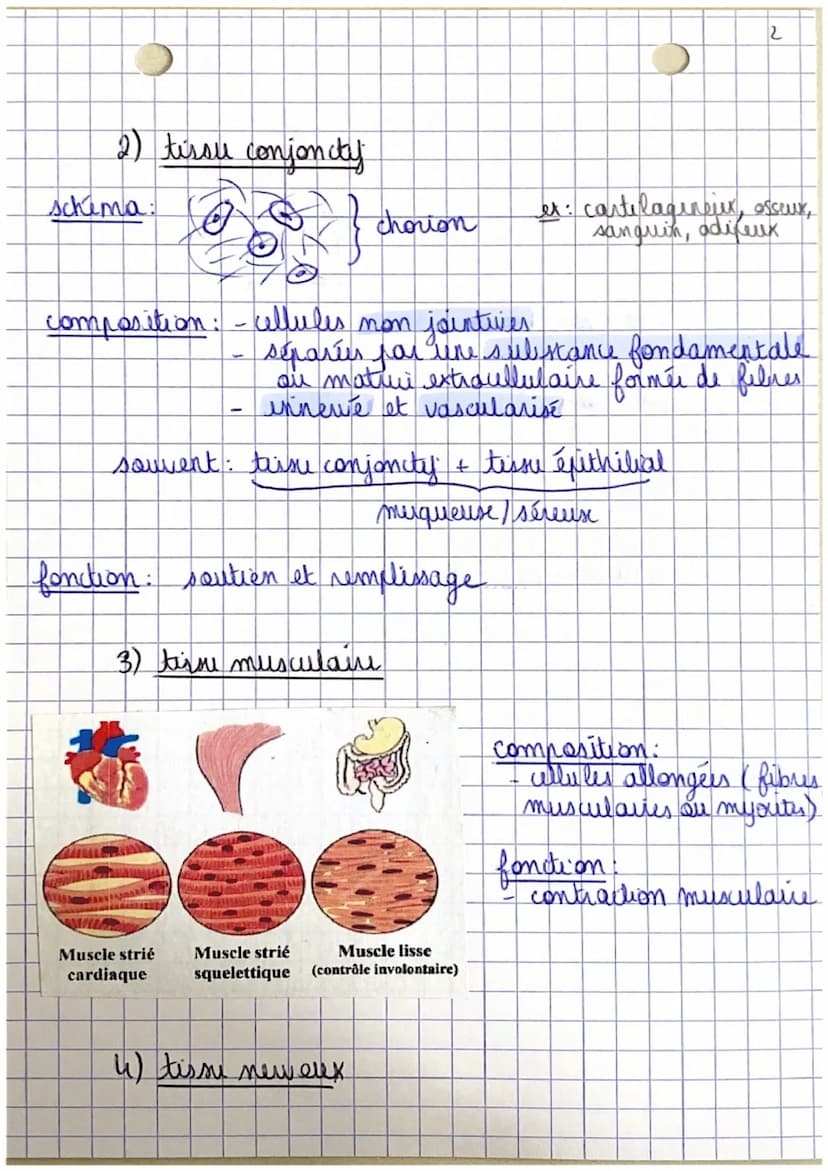 2
2) tissu conjonctif
schéma:
chorion
ex: cartilagineux, osseux,
sanguin, adipeux
composition: - cellules non jointives
- séparées par une substance fondamentale
ou matrice extracellulaire formée de fibres
- innervé et vascularisé
souvent: tissu conjonctif + tissu épithélial
muqueuse / séreuse
fonction: soutien et remplissage
3) tissu musculaire
composition:
- cellules allongées (fibres
musculaires ou myocytes)
fonction:
- contraction musculaire
Muscle strié
cardiaque
Muscle strié
squelettique
Muscle lisse
(contrôle involontaire)
4) tissu nerveux